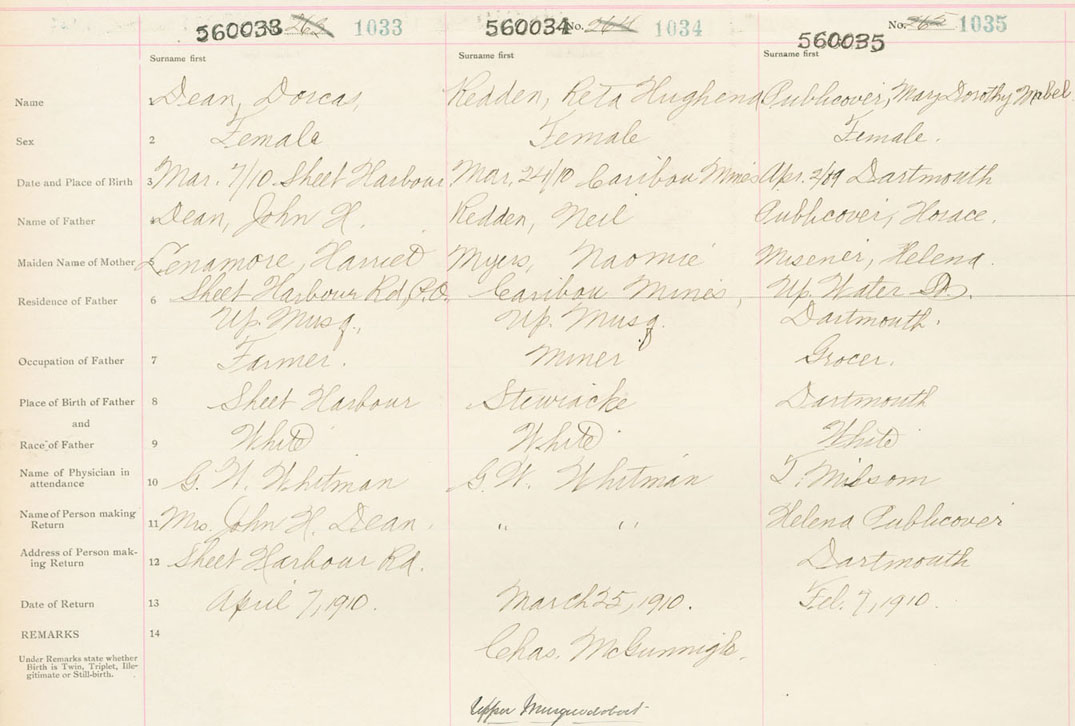 560033 263 1033
560034 No. 264 1034
560035 No. 265 1035
Surname first Surname first Surname first
Name 1 Dean, Dorcas, Redden, Reta Hughena Publicover, Mary Dorothy Mabel
Sex 2 Female Female Female.
Date and Place of Birth 3 Mar. 7/10. Sheet Harbour Mar, 24/10 Caribou Mines Apr. 2/09 Dartmouth
Name of Father 4 Dean, John H. Redden, Neil Publicover, Horace.
Maiden Name of Mother 5 Lenamore, Harriet Myers, Naomie Misener, Helena.
Residence of Father 6 Sheet Harbour Rd, P.O. Caribou Mines, Up. Water St.
Up. Musq., Up. Musq. Dartmouth.
Occupation of Father 7 Farmer. Miner Grocer.
Place of Birth of Father 8 Sheet Harbour Stewiacke Dartmouth
and
Race of Father 9 White White White
Name of Physician in
attendance 10 G. W. Whitman G. W. Whitman T. Milsom
Name of Person making
Return 11 Mrs. John H. Dean. " " Helena Publicover
Address of Person mak-
ing Return 12 Sheet Harbour Rd. Dartmouth
Date of Return 13 April 7, 1910. March 25, 1910. Feb. 7, 1910.
REMARKS 14
Chas. McGunnigle.
Under Remarks state whether
Birth is Twin, Triplet, Ille-
gitimate or Still-birth.
Upper Musquodoboit